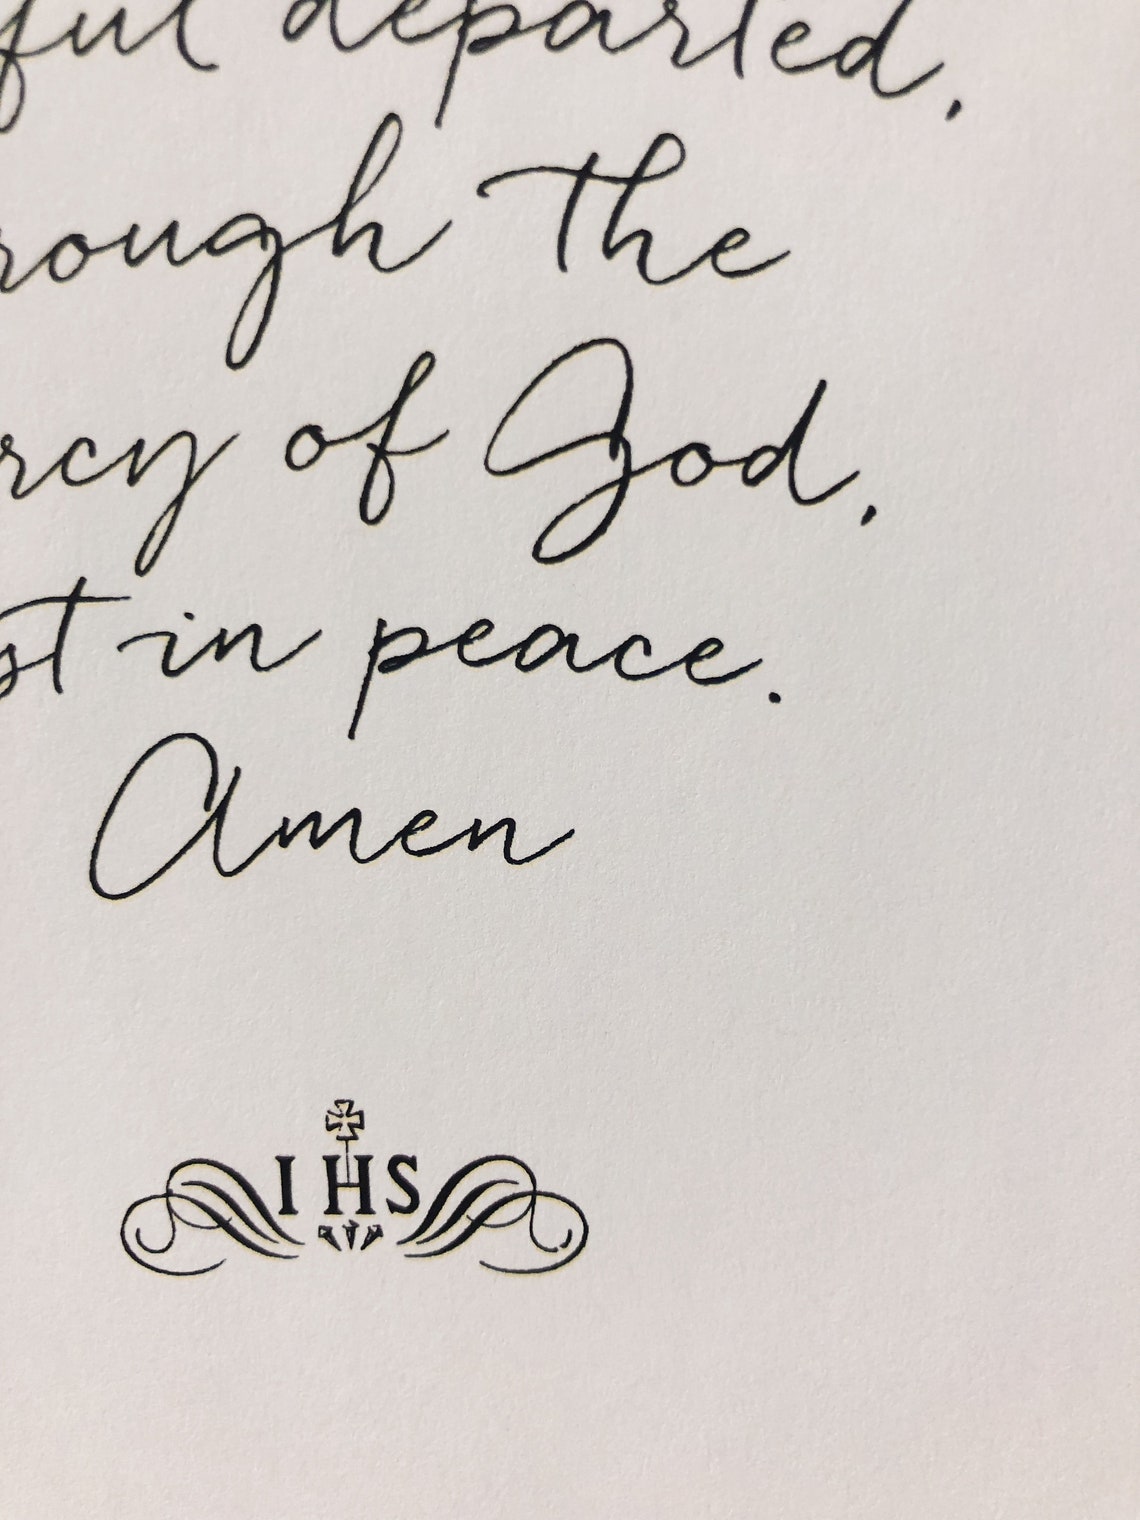 ful departed,
rough the
rcy of God,
st in peace.
Amen
IHS